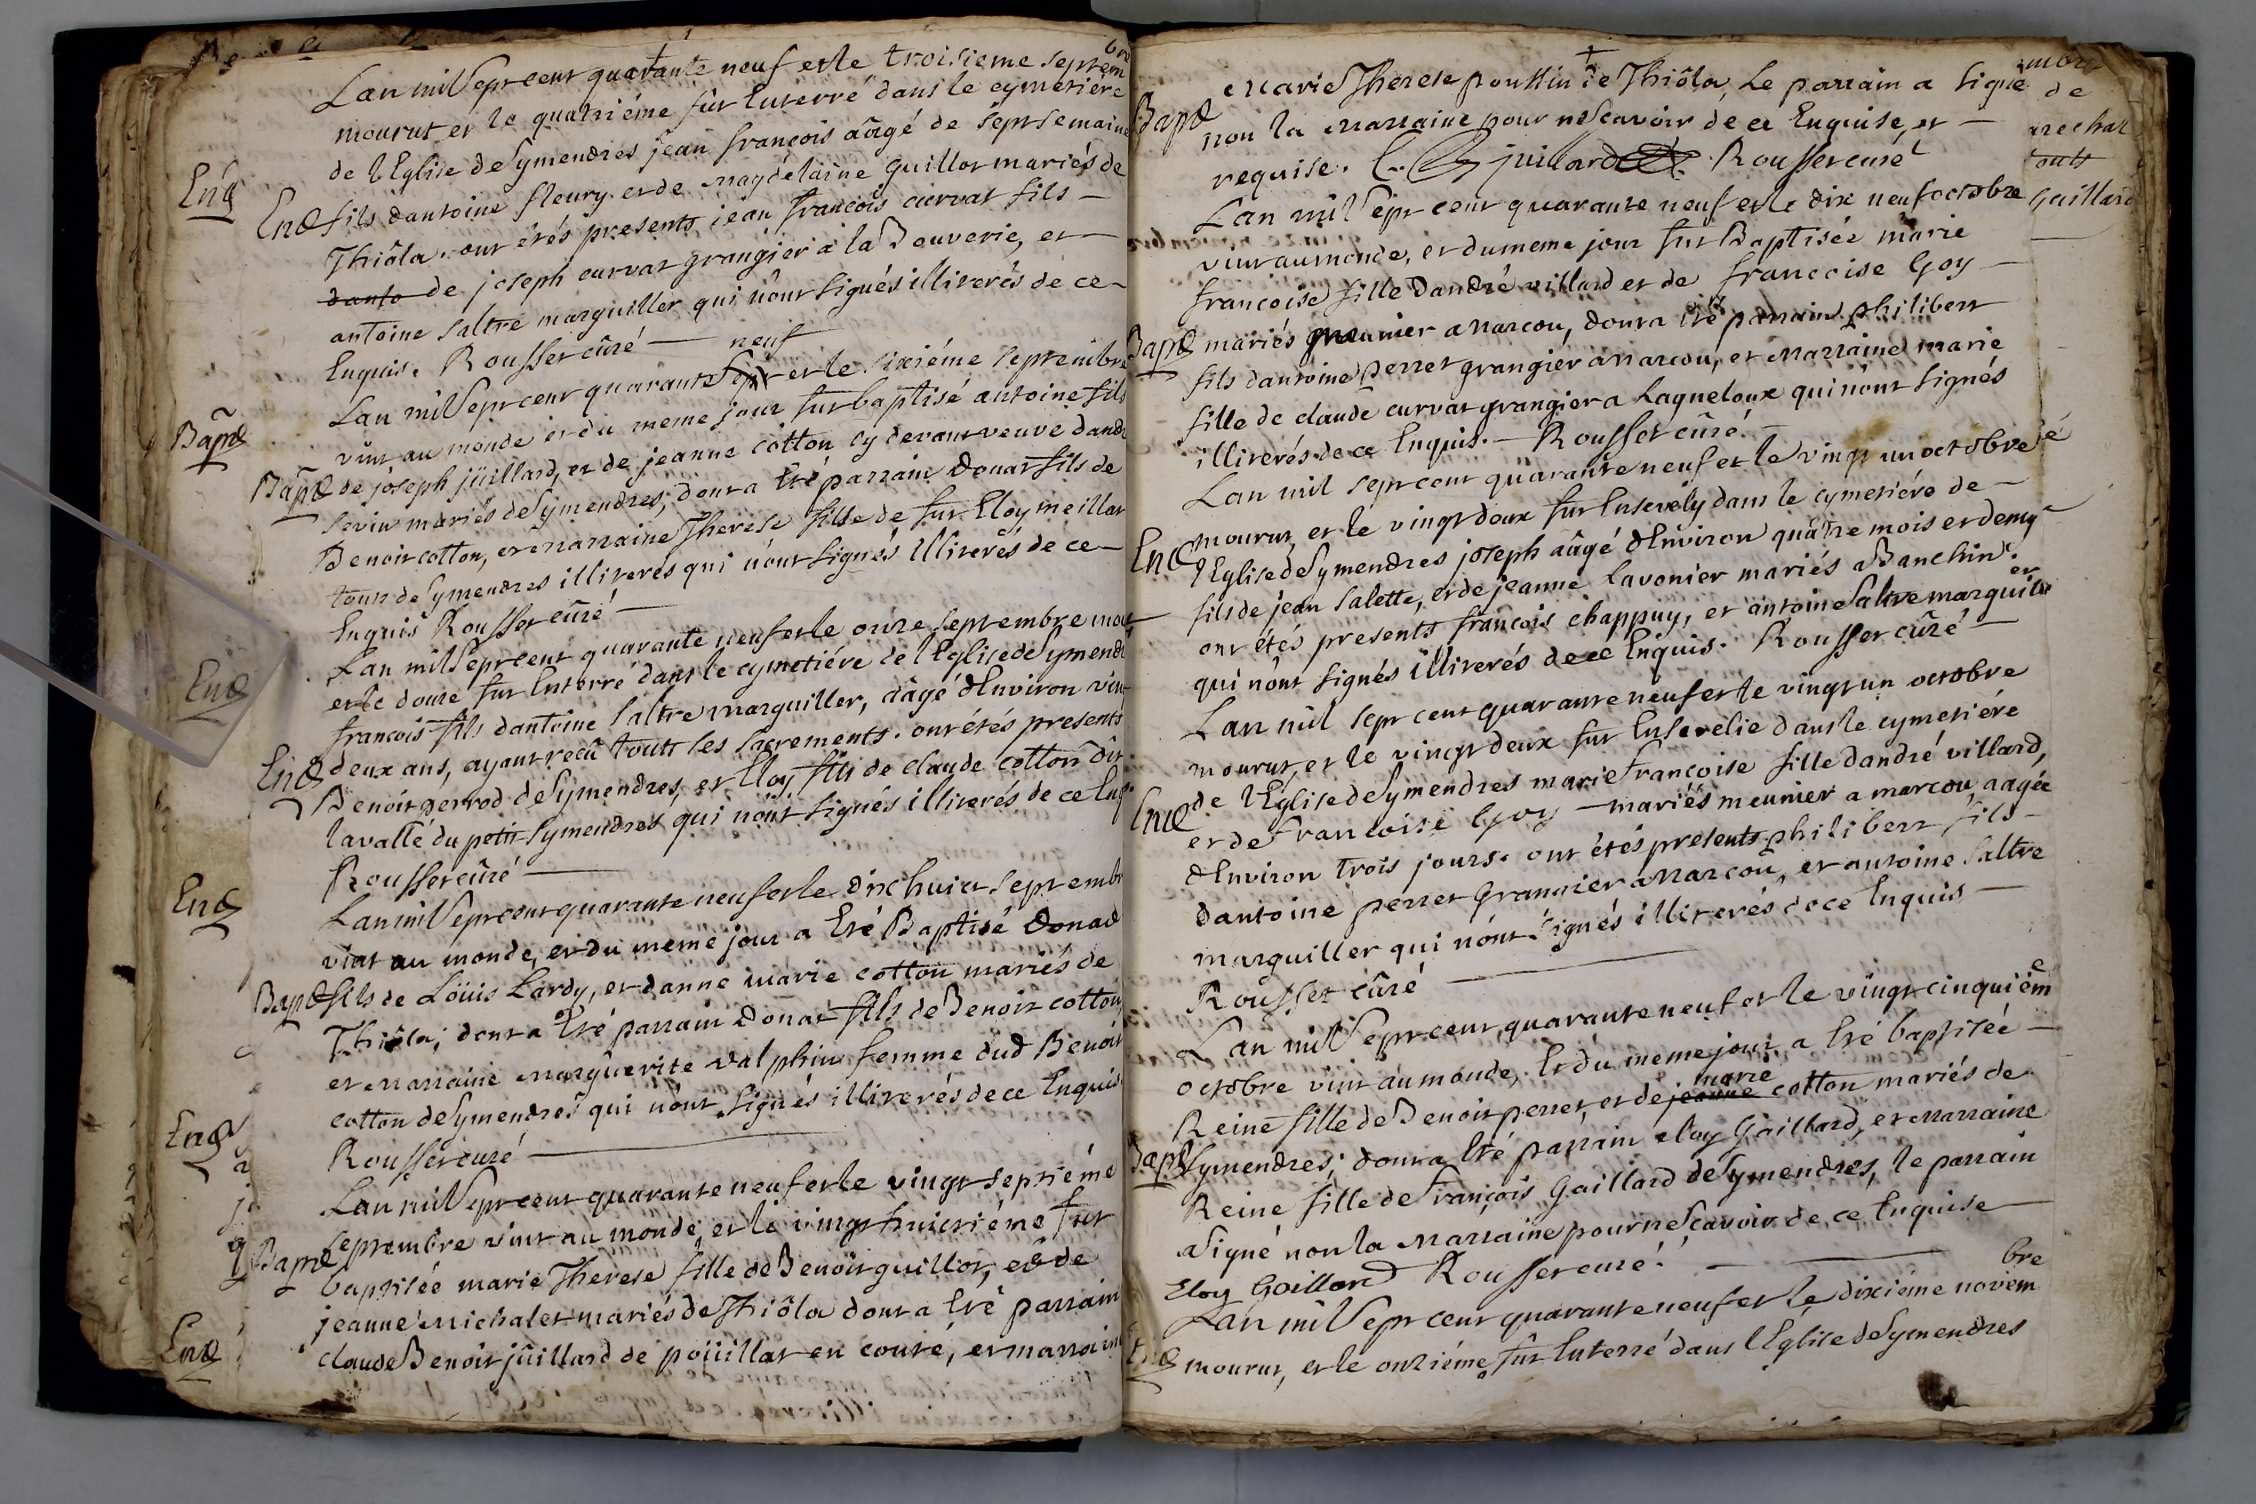 Lan mil Sept cent quarante neuf et le troisieme septembre
mourut et le quatriéme fut Enterré dans le cymetiére
de lEglise de Symendres jean françois aâgé de sept semaine
End fils dantoine fleury et de Magdelaine guillot mariés de
Thiôla. ont étés presents jean francois curvat fils
danto de joseph curvat grangier à la Bouverie, et
antoine Saltre marguiller qui n'ont signés illiterés de ce
Enquis. Rousset cûré
Lan mil Sept cent quarante Sept neuf et le sixiéme septembre
vint au monde et du meme jour fut baptisé antoine fils
Bapt de joseph juillard, et de jeanne cotton cy devant veuve dandr
Sevin mariés de Symendres, dont a Eté parrain Donat fils de
Benoit cotton, et Marraine Therese fille de fut Eloy meillar
tous de Symendres illiterés qui n'ont signés illiterés de ce
Enquis Rousset cûré
Lan mil Sept cent quarante neuf et le onze septembre mour
et le douze fut Enterré dans le cymetiére de lEglise de Symend
francois fils dantoine saltre marguiller, aâgé dEnviron vint
End deux ans, ayant recû touts les sacrements. ont étés presents
Benoit perrod de Symendres, et Eloy fils de claude cotton dit
lavallé du petit Symendres qui n'ont signés illiterés de ce Enq
Rousset cûré
Lan mil Sept cent quarante neuf et le dix huict septembr
vint au monde, et du meme jour a Eté Baptisé Donad
Bapt fils de Loüis Lardy, et danne marie cotton mariés de
Thiôla, dont a Eté parrain Donat fils de Benoit cotton,
et Marraine Marguerite valphin femme dud Benoit
cotton de Symendres qui n'ont signés illiterés de ce Enquis.
Rousset curé
Lan mil Sept cent quarante neuf et le vingt septiéme
septembre vint au monde, et le vingt huictiéme fut
Bapt baptisée marie Therese fille de Benoit guillot, et de
jeanne Michalet mariés de Thiôla dont a Eté parrain
claude Benoit jüillard de poüillat en conté, et marraine
Marie Therese poussin de Thiôla, Le parrain a signé
Bapt non la Marraine pour ne sçavoir de ce Enquise, et
requise. juillard Rousset curé
Lan mil Sept cent quarante neuf et le dix neuf octobre
vint au monde, et du meme jour fut Baptisée marie
francoise fille dandré villard et de francoise Goy
Bapt mariés meunier a Marcou, dont a été parrain philibert
fils dantoine perret grangier a Marcou, et Marraine marie
fille de claude curvat grangier a Laqueloux qui n'ont signés
illiterés de ce Enquis. Rousset cûré.
Lan mil sept cent quarante neuf et le vingt un octobre
mourut, et le vingt doux fut Ensevely dans le cymetiére de
End lEglise de Symendres joseph aâgé dEnviron quâtre mois et demy
fils de jean Salette, et de jeanne Lavonier mariés a Banchin.
ont étés presents francois chappuy, et antoine Saltre marguiller
qui n'ont signés illiterés de ce Enquis. Rousset cûré
Lan mil sept cent quarante neuf et le vingt un octobre
mourut, et le vingt deux fut Ensevelie dans le cymetiére
de lEglise de Symendres marie francoise fille dandré villard,
End et de francoise Goy mariés meunier a marcou, aagée
dEnviron trois jours. ont étés presents philibert fils
dantoine perret Grangier a Marcou, et antoine Saltre
marguiller qui n'ont signés illiterés de ce Enquis
Rousset cûré
Lan mil Sept cent quarante neuf et le vingt cinquiéme
octobre vint au monde, Et du meme jour a Eté baptisée
Reine fille de Benoit perret, et de jeanne marie cotton mariés de
Bapt Symendres, dont a Eté parrain eloy Gaillard, et Marraine
Reine fille de françois Gaillard de Symendres, le parrain
a signé non la Marraine pour ne sçavoir de ce Enquise
Eloy Gaillard Rousset curé.
Lan mil Sept cent quarante neuf et le dixiéme novembre
End mourut, et le onziéme fût Enterré dans lEglise de Symendres